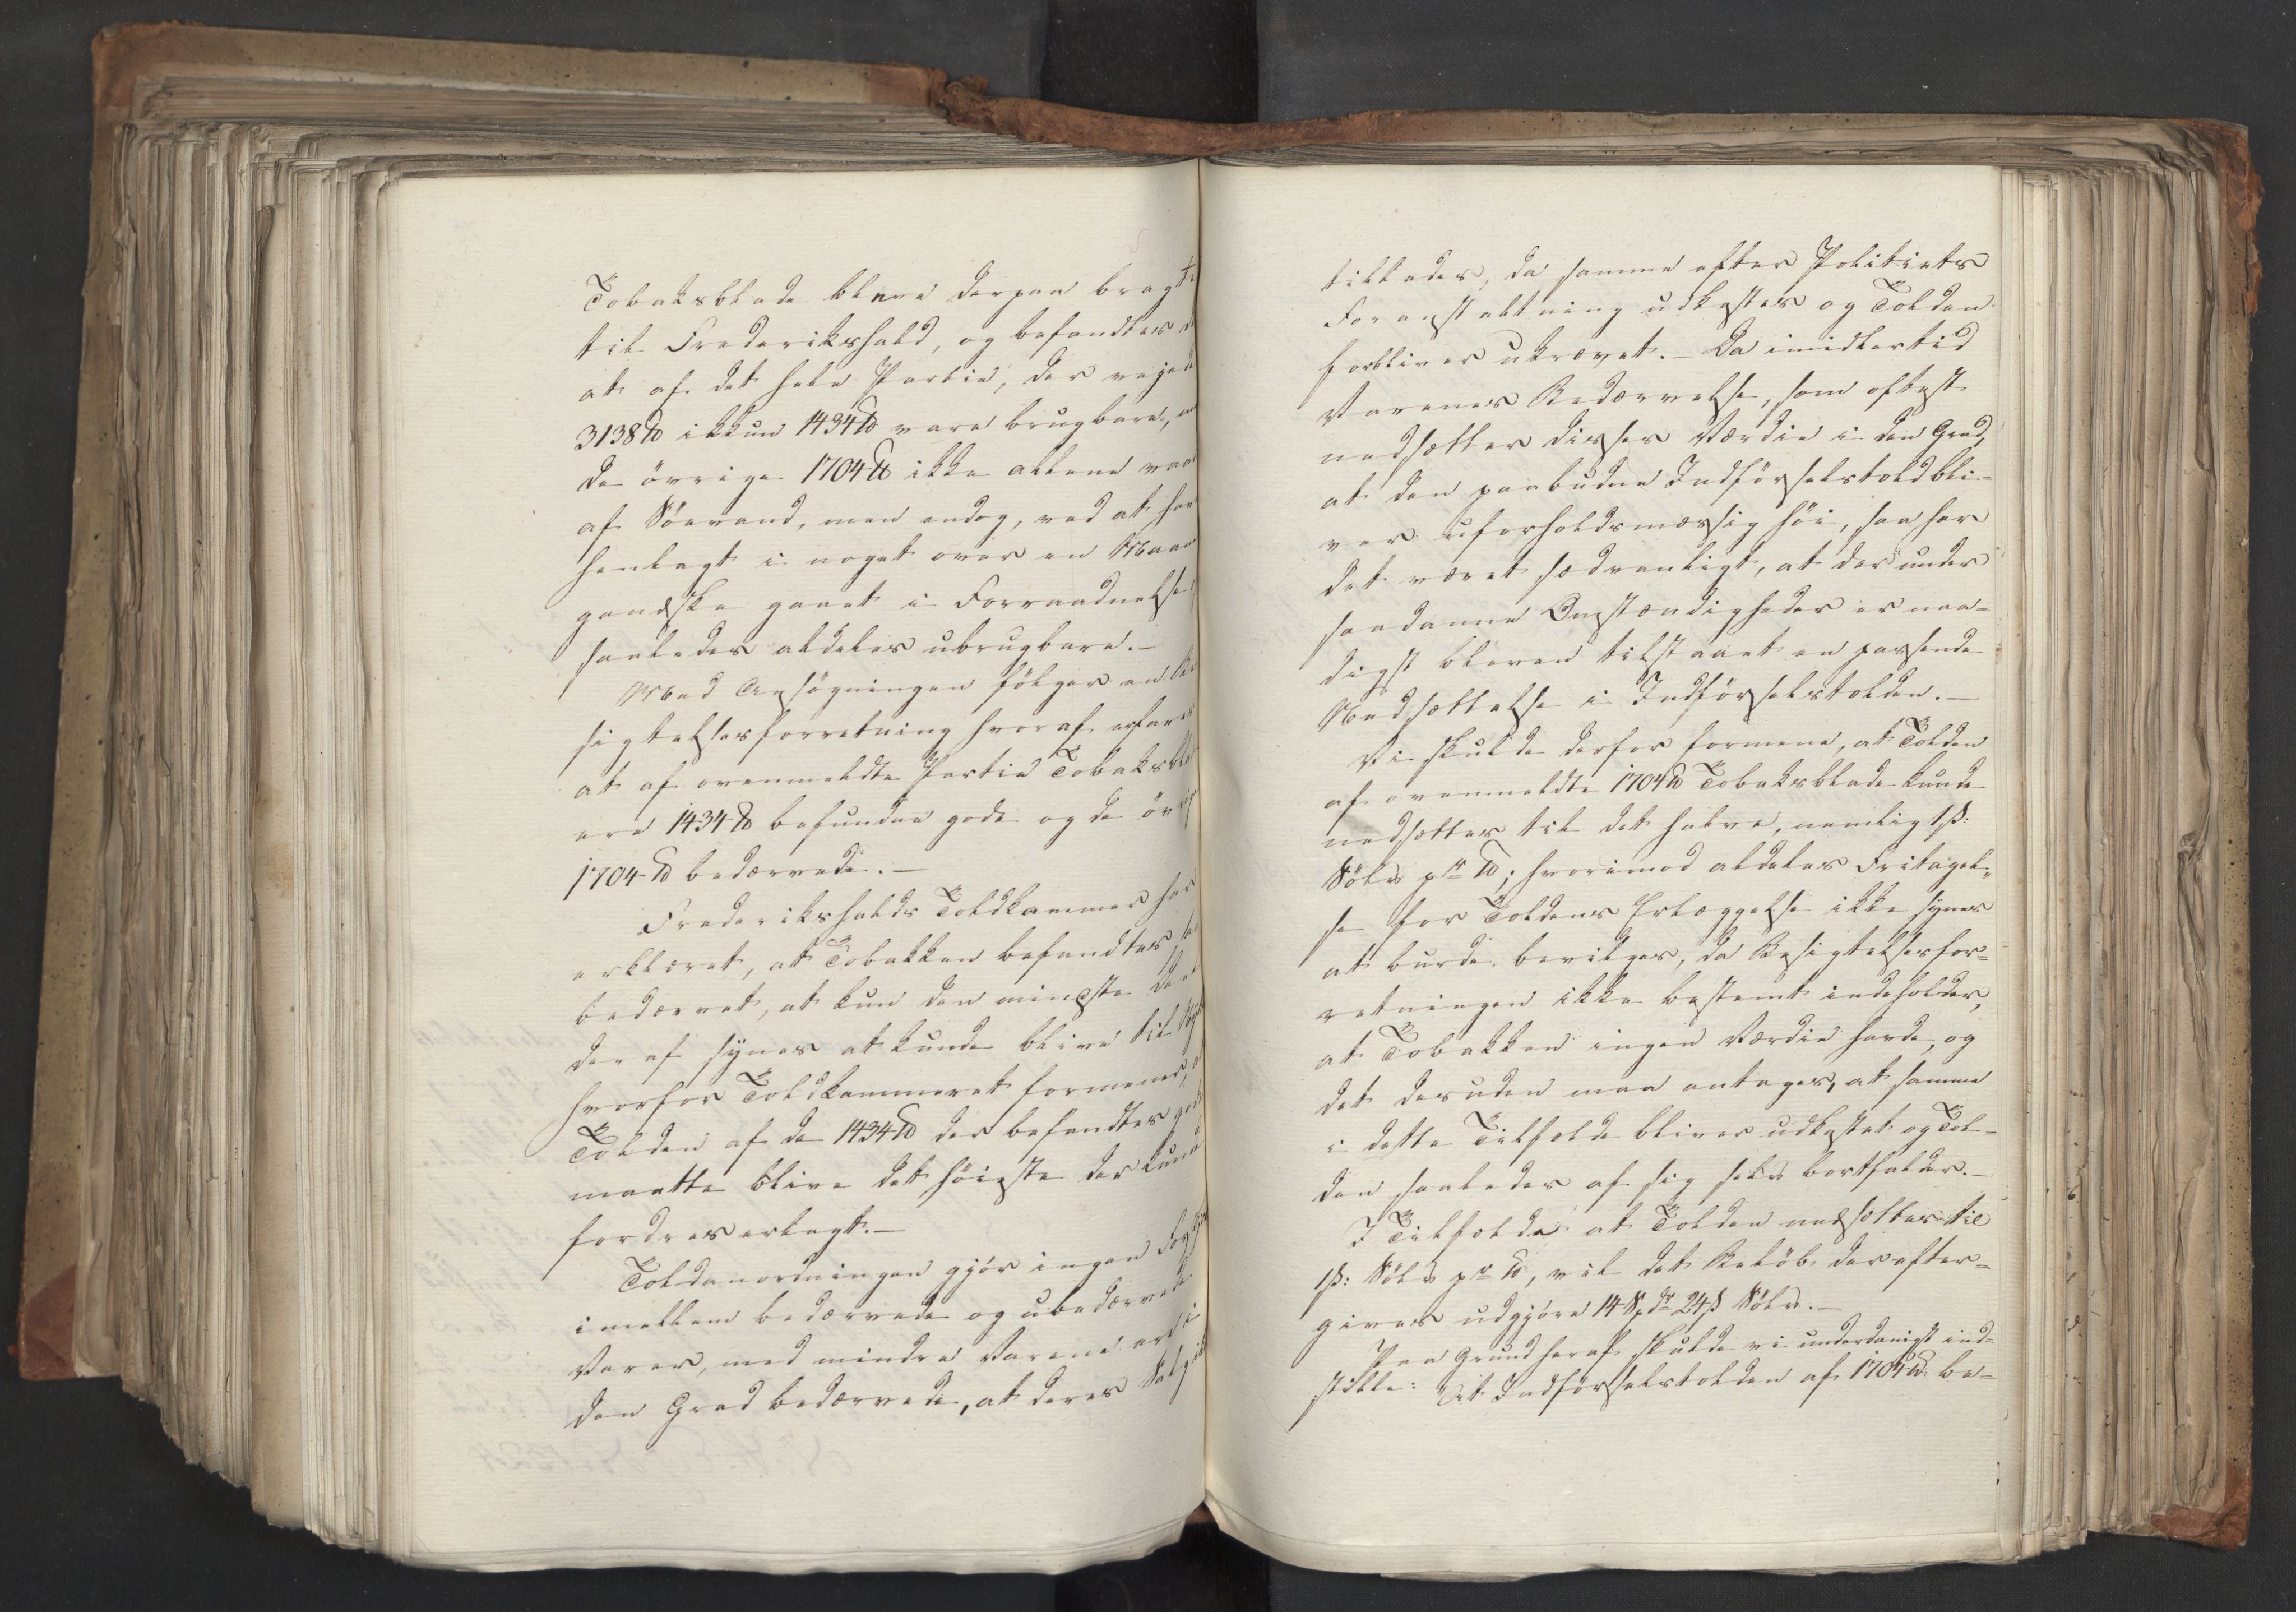 Tobaksblade bleve derpaa bragt
til Frederikshald, og befandtes
at af det hele Partie, der vejede
3138 ℔ ikkun 1434 ℔ vare brugbare,
de övrige 1704 ℔ ikke allene
af Söevand, men endog, ved at
henlagt i noget over en Maaned
gandske gaaet i Forraadnelse
saaledes aldeles ubrugbare.–
Med Ansögningen fölger en
sigtelsesforretning hvoraf erfares
at af ovenmeldte Partie Tobaksblade
ere 1434 ℔ befundne gode og de övrige
1704 ℔ bedærvede.–
Frederikshalds Toldkammer har
erklæret, at Tobakken befandtes
bedærvet, at kun den mindste Deel
der af synes at kunde blive til
hvorfor Toldkammeret formener,
Tolden af de 1434 ℔ der befandtes gode
maatte blive det höieste der kunde
fordres erlagt.–
Toldanordningen gjör ingen
imellem bedærvede og ubedærvede
Varer, med mindre Varene ere i
den Grad bedærvede, at deres Salg
tillades, da samme efter Politiets
Foranstaltning udkastes og Tolden
forbliver ukrævet.– Da imidlertid
Varenes Bedærvelse, som oftest
nedsætter disses Værdie i den Grad,
at den paabudne Indförselstold bli-
ver uforholdsmæssig höi, saa har
det været sædvanligt, at der under
saadanne Omstændigheder er naa-
digst bleven tilstaaet en passende
Nedsættelse i Indförselstolden.–
Vi skulde derfor formene, at Tolden
af ovenmeldte 1704 ℔ Tobaksblade kunde
nedsættes til det halve, nemlig 1 ß:
Sölv pr ℔; hvorimod aldeles Fritagel-
se for Toldens Erlæggelse ikke synes
at burde bevilges, da Besigtelsesfor-
retningen ikke bestemt indeholder,
at Tobakken ingen Værdie havde, og
det desuden maa antages, at samme
i dette Tilfælde bliver udkastet og Tol-
den saaledes af sig selv bortfalder.–
I Tilfælde at Tolden nedsættes til
1 ß: Sölv pr ℔, vil det Belöb der efter-
gives udgjöre 14 Spdr 24 ß Sölv.–
Paa Grund heraf skulde vi underdanigst ind-
stille: At Indförselstolden af 1704 ℔ be-